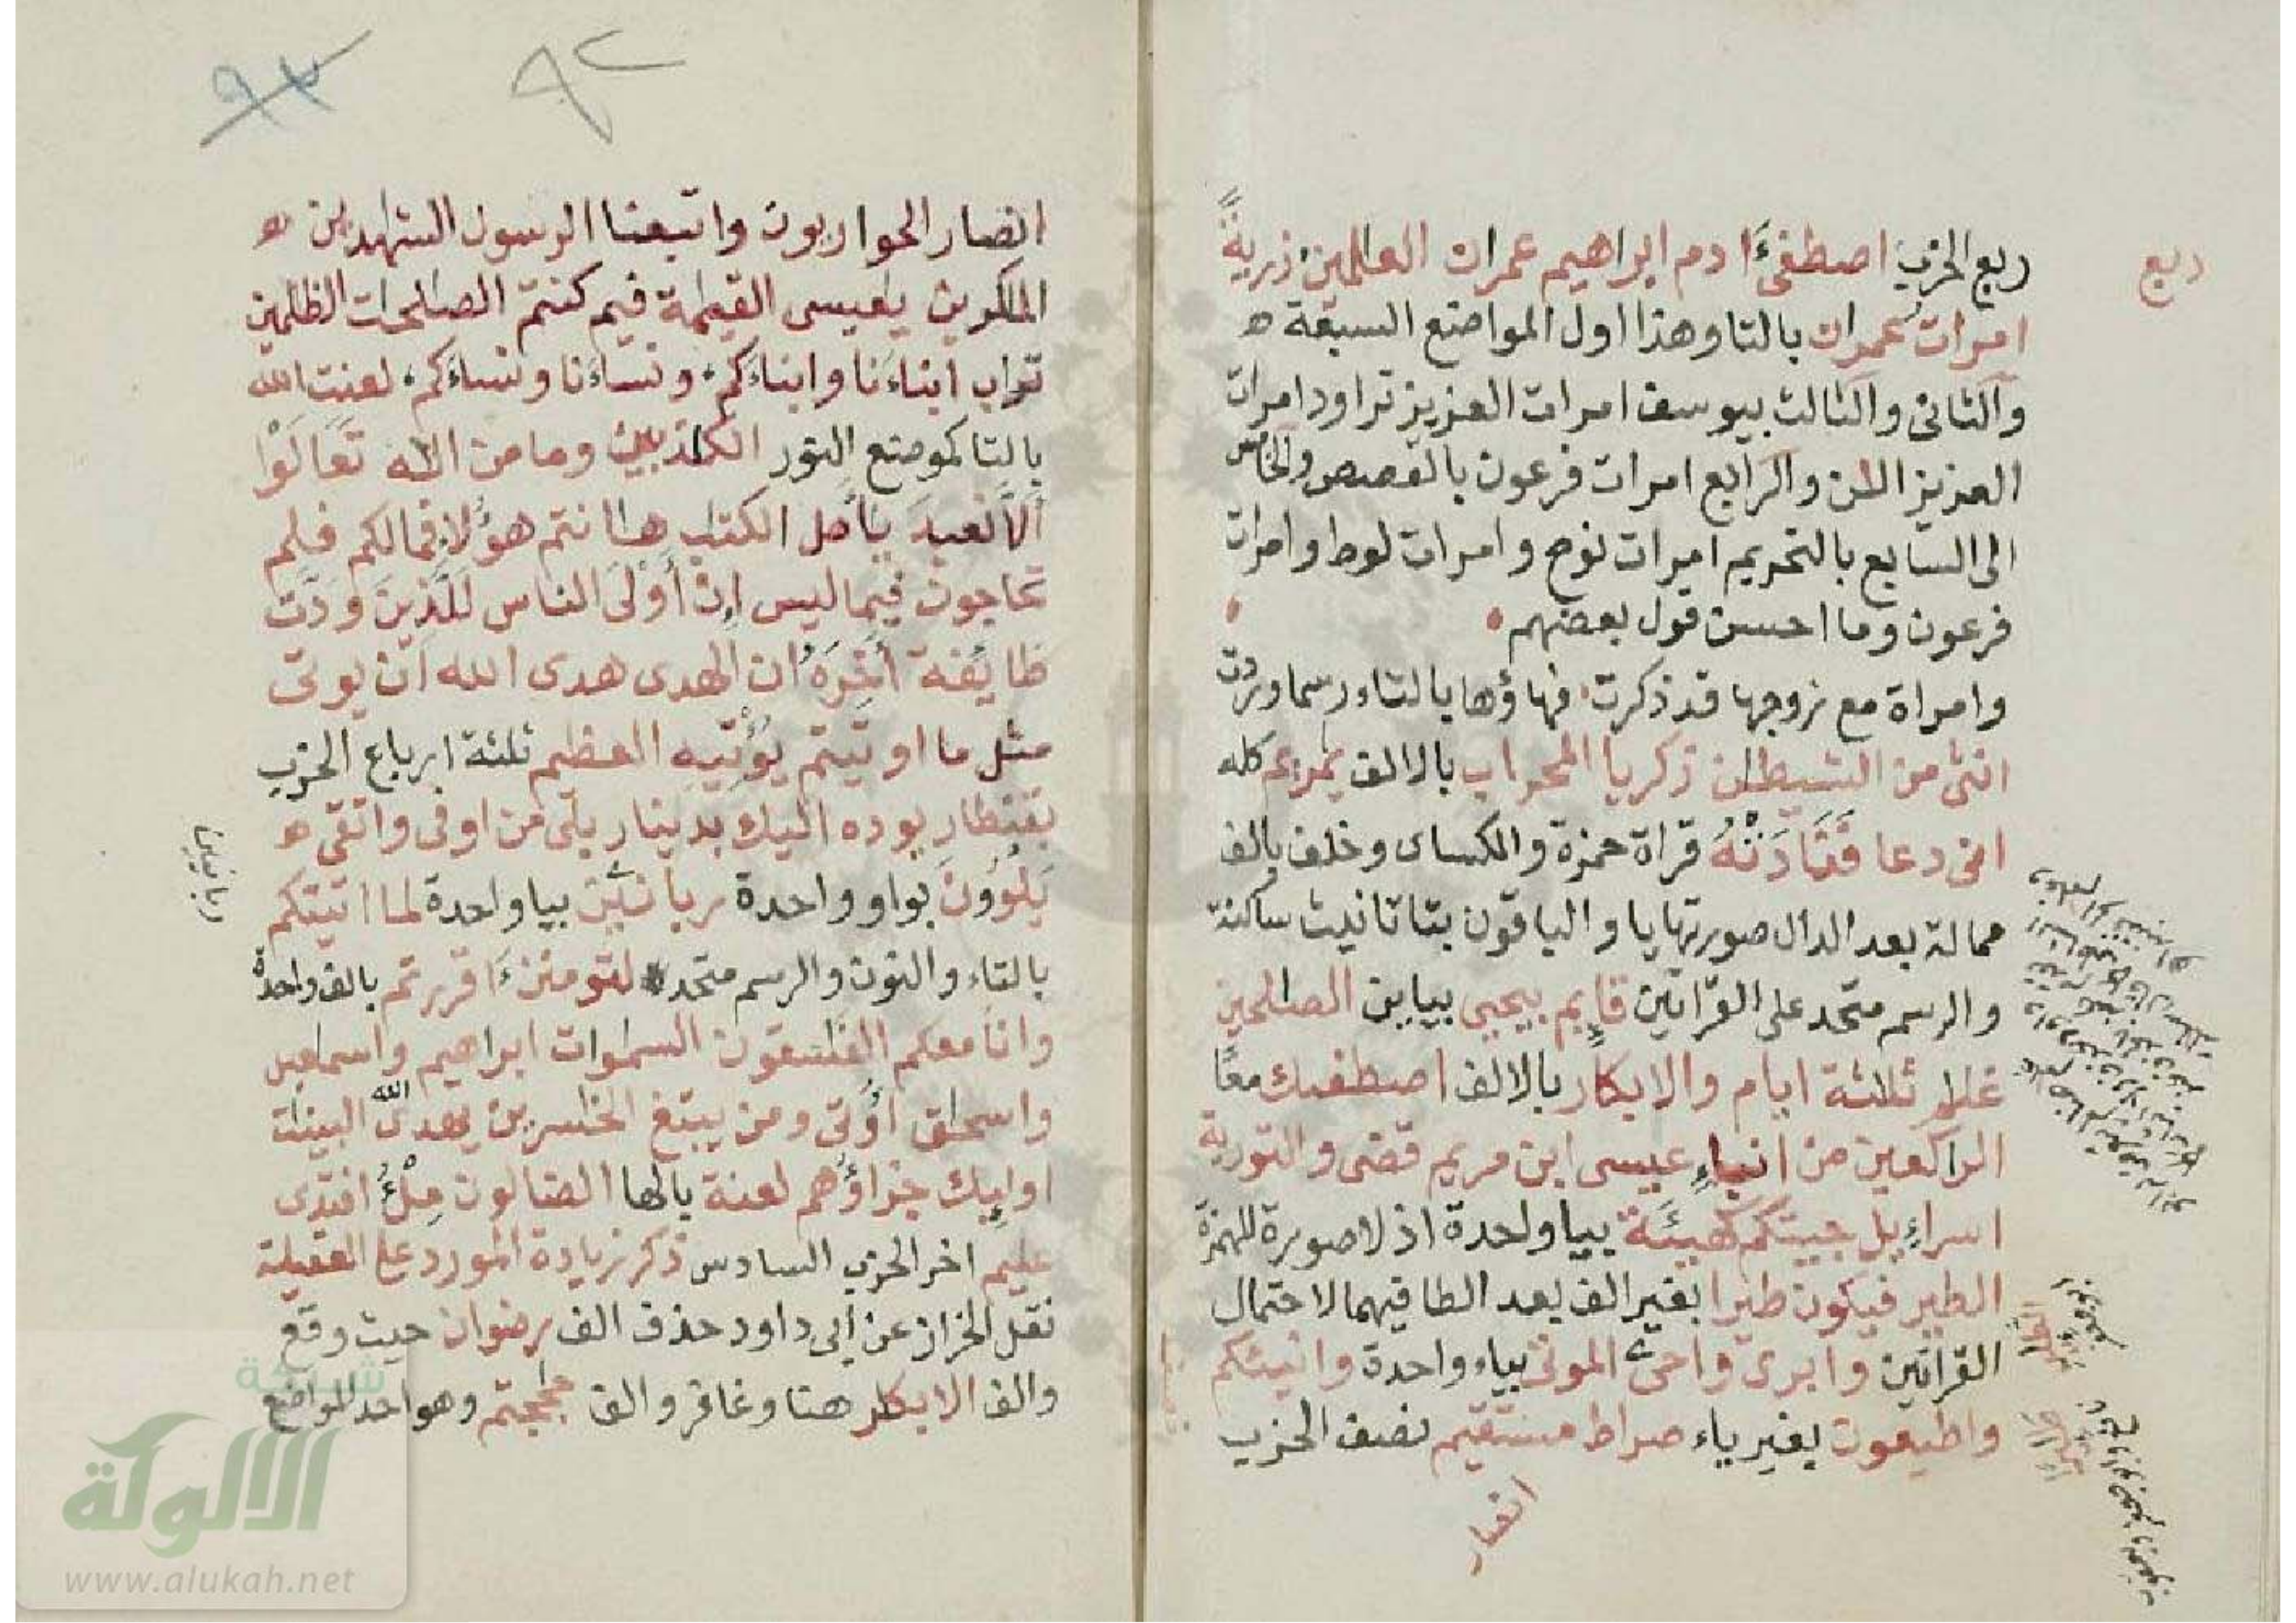 ربع
ربع الحزب اصطفىءادم ابراهيم عمران العلمين ذرية
امرات عمران بالتا وهذا اول المواضع السبعة ه
والثانى والثالث بيوسف امرات العزيز تراود امرات
العزيز الئن والرابع امرات فرعون بالقصص والخامس
الى السابع بالتحريم امرات نوح وامرات لوط وامرات
فرعون وما احسن قول بعضهم
وامراة مع زوجها قد ذكرت فهاؤها بالتاء رسما وردت
انثى من الشيطن زكريا المحراب بالالف يمريم كله
انى دعا فَنَادَتْهُ قراة حمزة والكساى وخلف بالف
ممالة بعد الدال صورتها يا والباقون بتا تانيث ساكنة
والرسم متحد على القراتين قايم بيحيى بيايين الصالحين
غلم ثلثة ايام والابكار بالالف اصطفىك معًا
الراكعين من انباء عيسى ابن مريم قضى والتورية
اسراءيل جيتكم كهيئَة بيا واحدة اذ لا صورة للهمزة
الطير فيكون طيرا بغير الف بعد الطا فيهما لاحتمال
القراتين وابرئ واحى الموتى بياء واحدة وانبئكم
واطيعون بغير ياء صراط مستقيم نصف الحزب
انصار
٩٢
٩٣
انصار الحواريون واتبعنا الرسول الشهدين ه
المكرين يعيسى القيمة فيم كنتم الصلحات الظلمين
تراب ابناءَنا وابناءَكم ونساءَنا ونساءَكم لعنت الله
بالتا كموضع النور الكذبين وما من اله تعالَوْا
ألّا نعبدَ يأهل الكتب هانتم هؤلا فمالكم فلم
تحاجون فيما ليس إن أَوْلى الناس لَلَّذِينَ وَدَّت
طايفة آخِرَهُ ان الهدى هدى الله ان يوتى
مثل ما اوتيتم يؤتيه العظيم ثلثة ارباع الحزب
بقنطار يوده اليك بدينار بلى من اوفى واتقى ه
يَلْوُونَ بواو واحدة ربانيّن بيا واحدة لما اتيتكم
ربانيين
بالتاء والنون والرسم متحد لتومنن ءَاقررتم بالف واحدة
وانا معكم الفسقون السموات ابراهيم واسمعيل
واسحق اُوتى ومن يبتغ الخسرين يهدى الله البينت
اوليك جزاؤُهم لعنة بالها الضالون مِلْءُ افتدى
عليم اخر الحزب السادس ذكر زيادة المورد على العقيلة
نقل الخراز عن ابى داود حذف الف رضوان حيث وقع
والف الابكر هنا وغافر والف حججتم وهو احد المواضع
شبكة
الالوكة
www.alukah.net